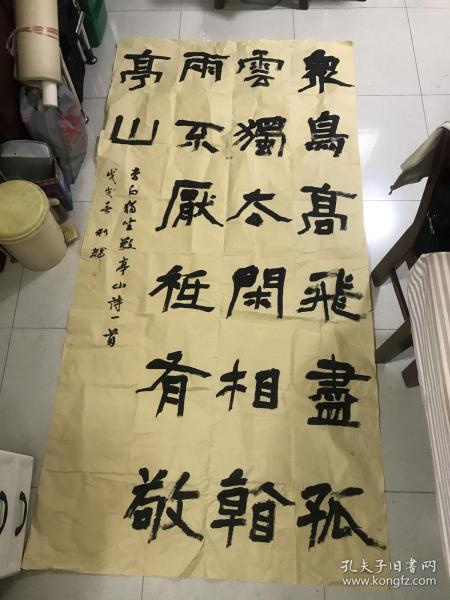 眾鳥高飛盡孤
雲獨去閑相看
兩不厭祇有敬
亭山
李白独坐敬亭山詩一首
戊戌春利輝
孔夫子旧书网
www.kongfz.com